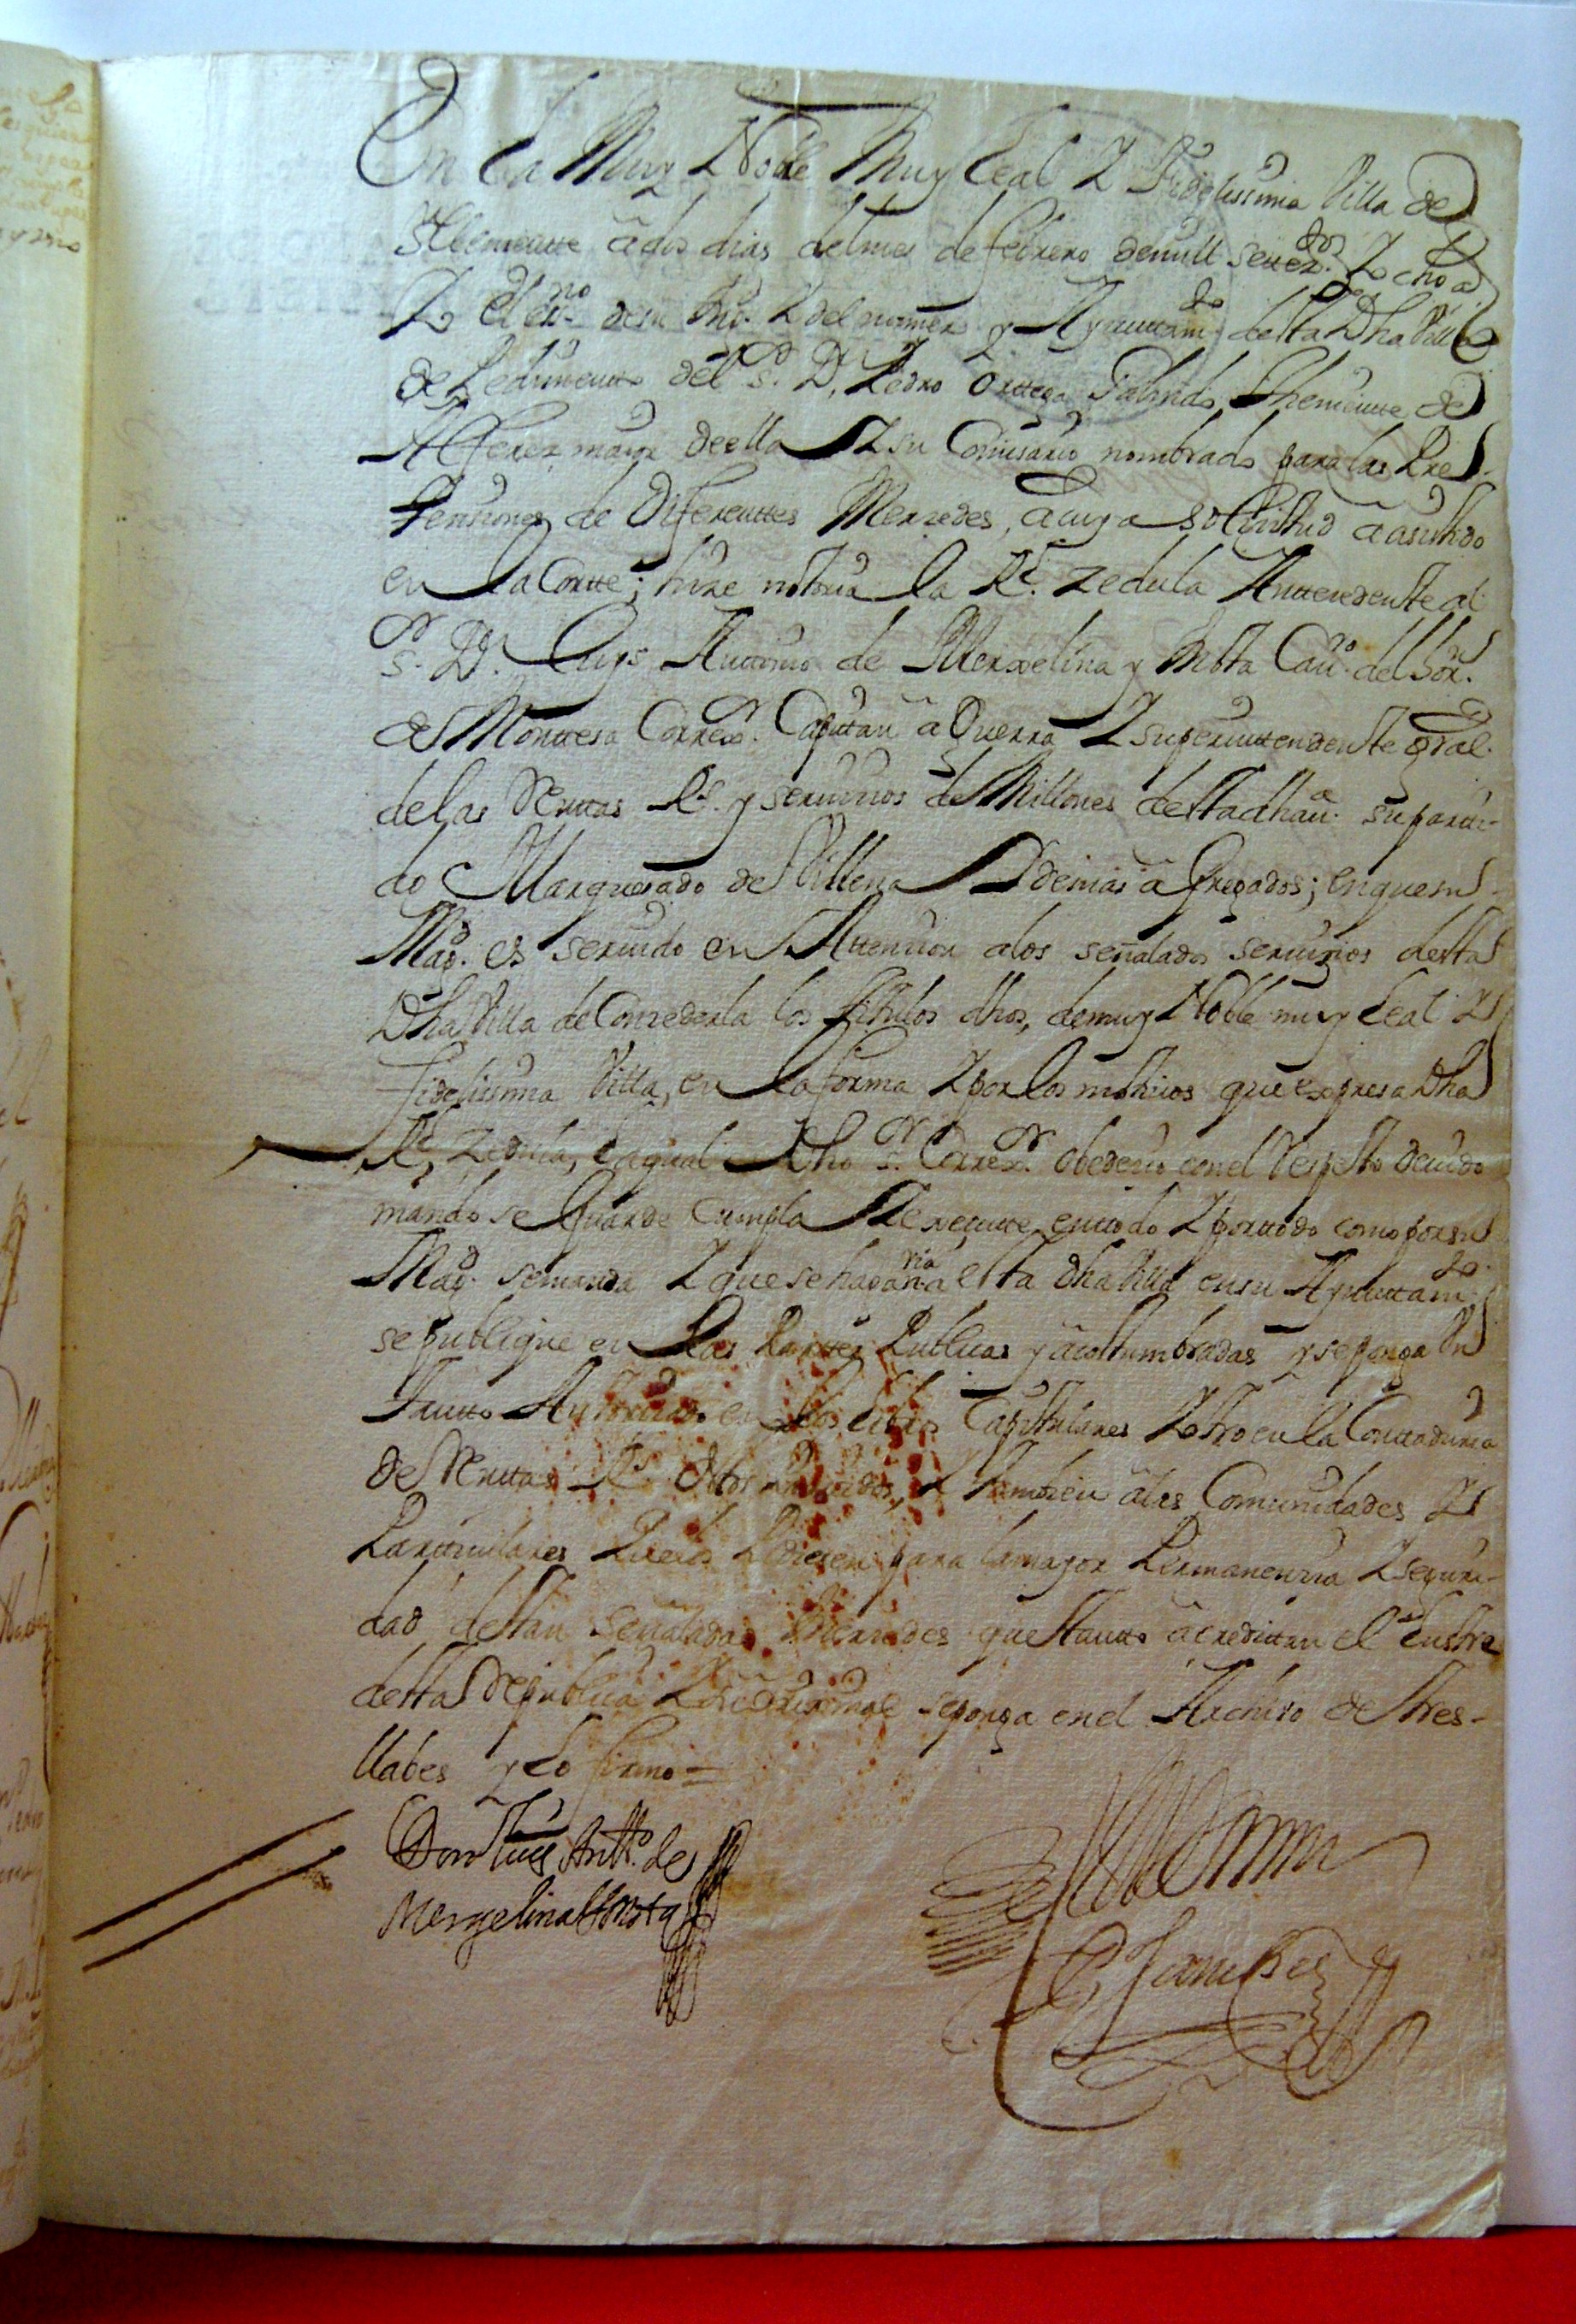 En la Muy Noble Muy Leal Y Fidelissima Villa de
Sn Clemente â dos dias del mes de febrero de mill setezos. Y ocho a
Yo el esno. de su Md. Y del numero y Ayuntamto desta Dha Villa
de Pedimento del Sr. Dn. Pedro Orttega Galindo, Theniente de
Alferez maior de ella Y su Comisario nombrado para las Pre-
tensiones de Diferenttes Merzedes, â cuya solicitud â asistido
en la Cortte; hize notoria la Rl. zedula Anttecedente al
Sr. Dn. Luys Antonio de Mergelina y Motta Cauo. del horn.
de Monttesa Correxor. Capitan â Guerra Y superinttendente gral.
de las Renttas Rs. y seruicios de Millones desta dha va. su parti-
do Marquesado de Villena Y demas â Gregados; en que su
Magd. es seruido en Attencion a los señalados seruicios desta
Dha Villa de Conzederla los titulos dhos, de muy Noble muy Leal Y
fidelissima Villa, en la forma Y por los motiuos que expresa Dha
Rl. Zedula, la qual Dho Sr. Correxor. obedecio con el Respeto deuido
mando se Guarde Cumpla Y execute en ttodo Y por ttodo como por su
Magd. se manda Y que se haga notoria a esta dha Villa en su Ayunttamto.
se publique en las Parttes Publicas y acostumbradas y se ponga Vn
Tantto Autorizado en los Libros Capitulares Y otro en la Conttaduria
de Renttas Rs. desta Y Tambien â las Comunidades Y
Particulares que los Pidiesen para la mayor Permanencia Y seguri-
dad destan señaladas Mercedes que tantto acreditan el Lustre
desta Republica Y el Original se ponga en el Archiuo de tres
llabes y lo firmo =
Don Luis Antto. de
Mergelina y Motta
Sanchez